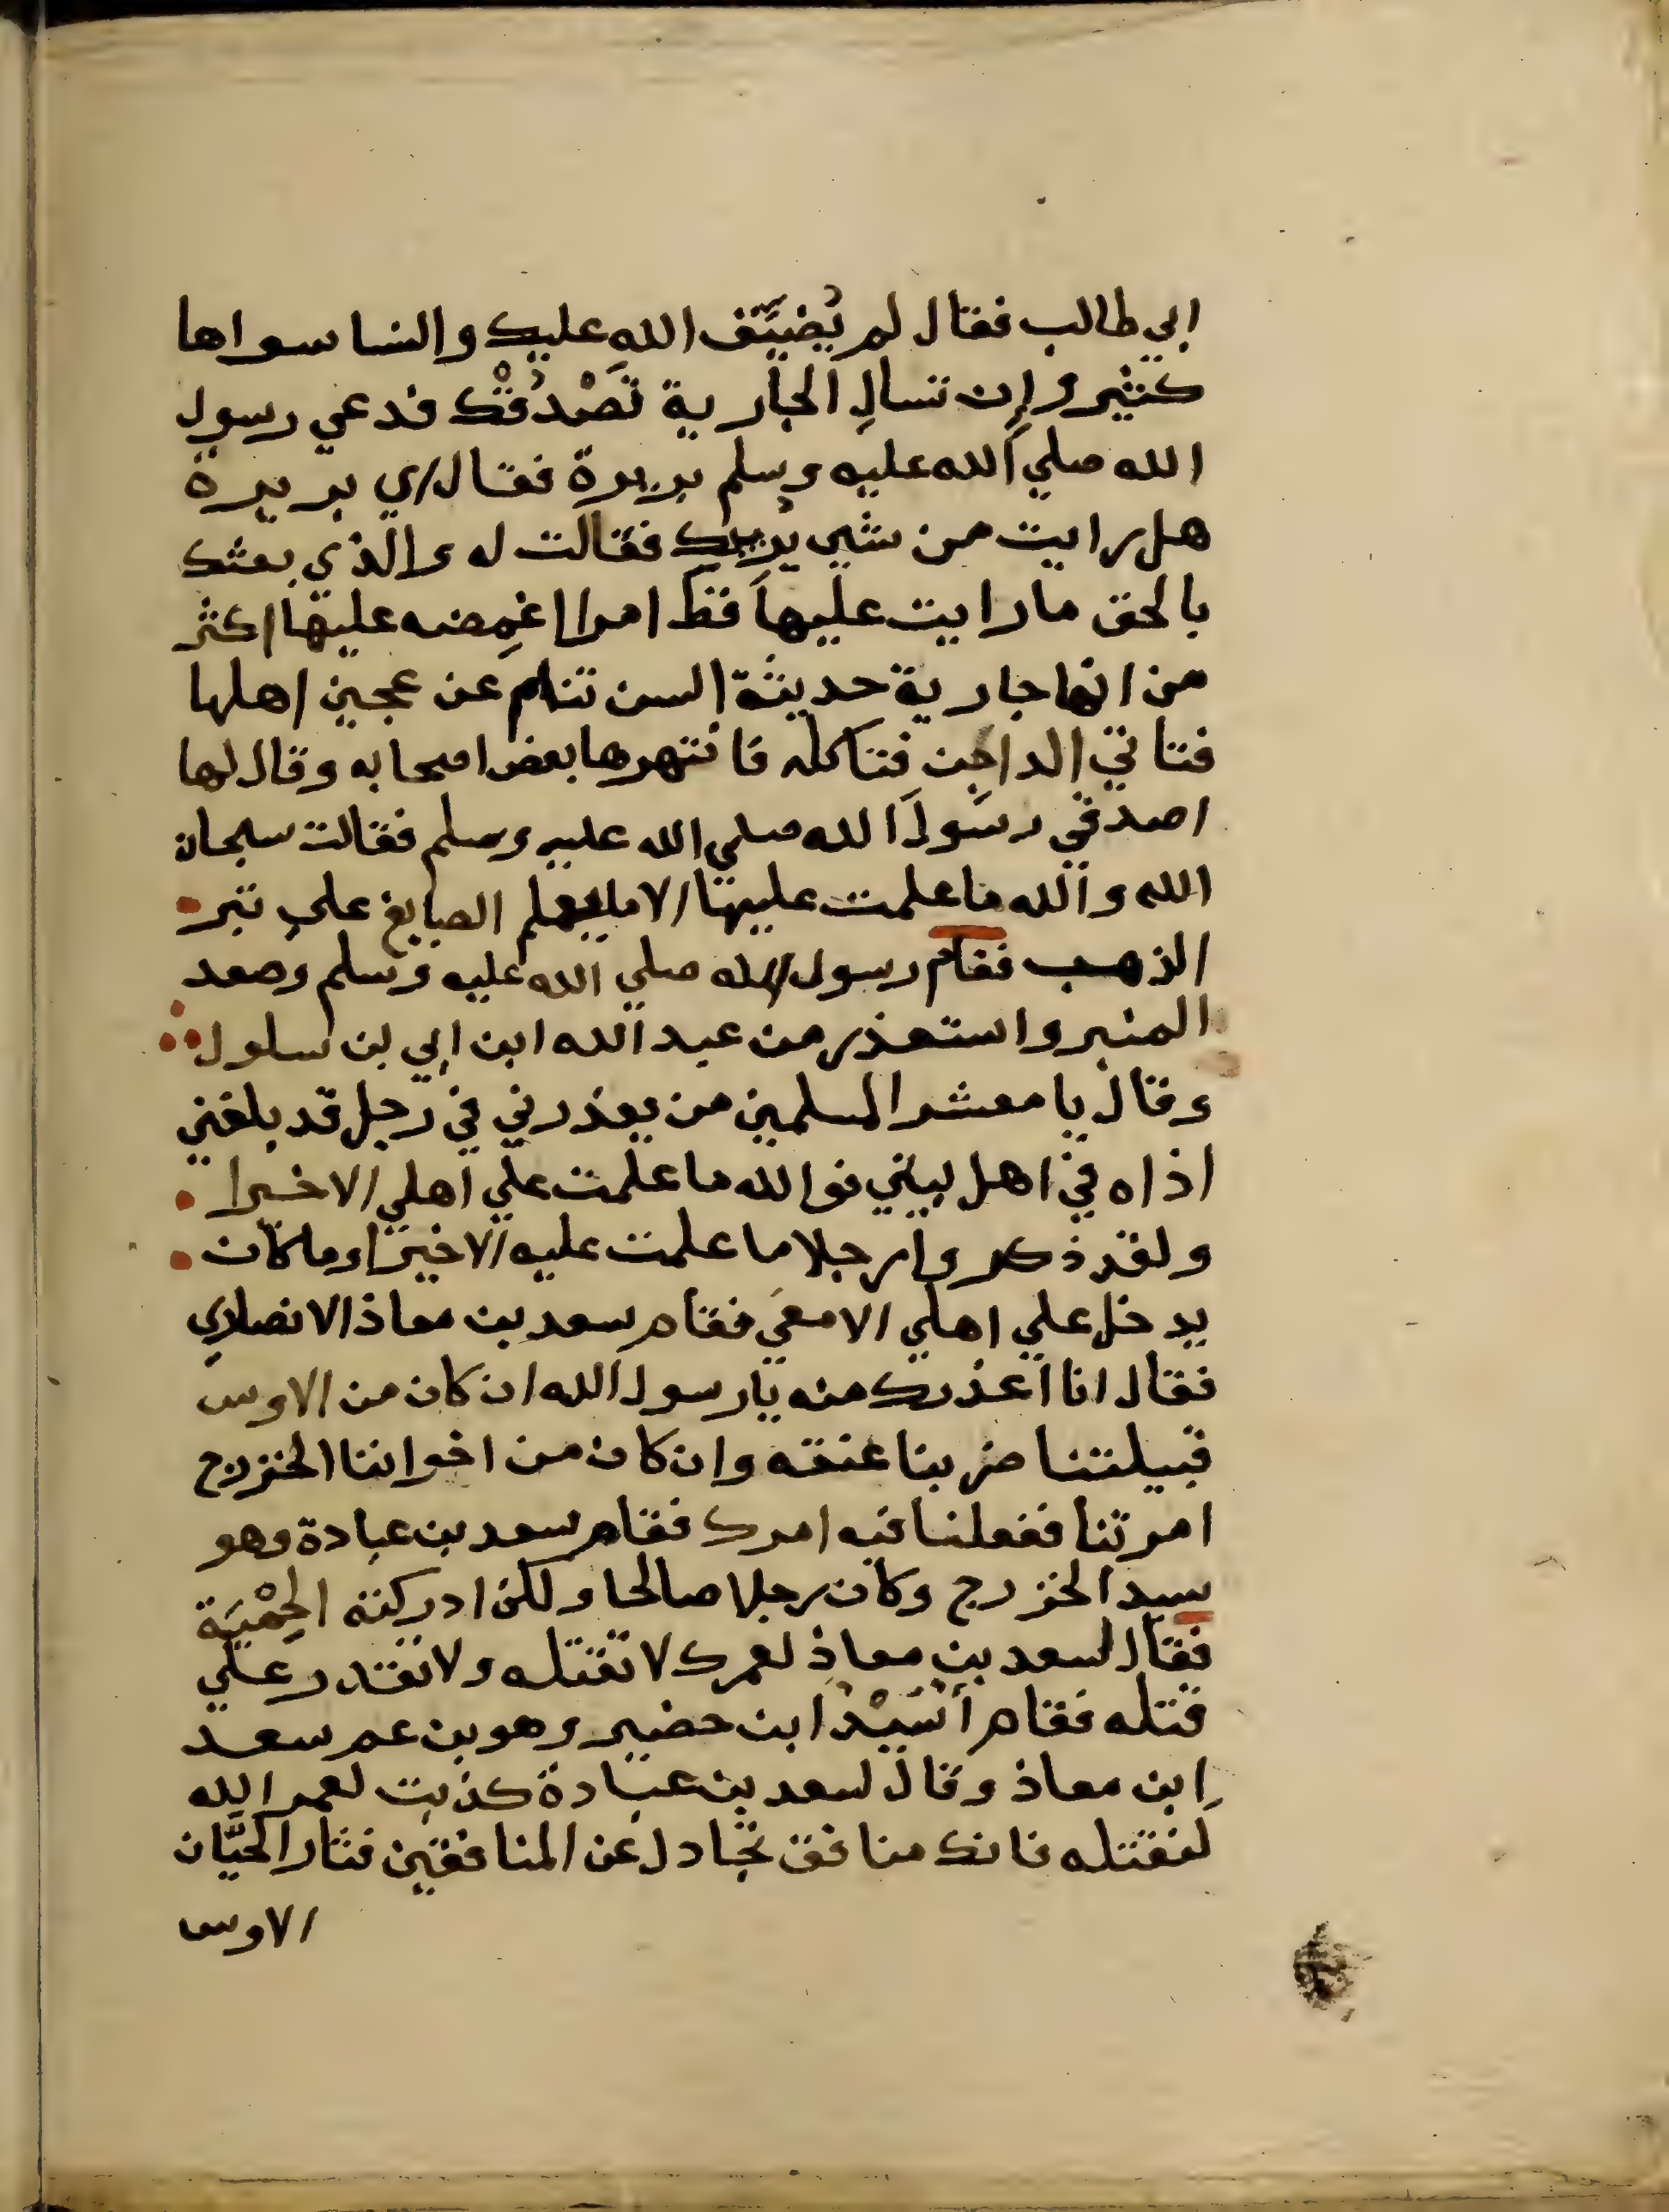 ابي طالب فقال لم يُضَيِّق الله عليك والنسا سواها
كثير وإن تسالِ الجارية تَصْدُقْك فدعي رسول
الله صلي الله عليه وسلم بريرة فقال اي بريرة
هل رايت من شي يريبك فقالت له والذي بعثك
بالحق ما رايت عليها قط امرا اغمِصه عليها اكثر
من انها جارية حديثة السن تنام عن عجين اهلها
فتاتي الداجن فتاكله فانتهرها بعض اصحابه وقال لها
اصدقي رسولَ الله صلي الله عليه وسلم فقالت سبحان
الله والله ما علمت عليها الا ما يعلم الصايغ علي تبر
الذهب فقام رسول الله صلي الله عليه وسلم وصعد
المنبر واستعذر من عبد الله ابن ابي بن سلول
وقال يا معشر المسلمين من يعذرني في رجل قد بلغني
اذاه في اهل بيتي فوالله ما علمت علي اهلي الا خيرا
ولقد ذكروا رجلا ما علمت عليه الا خيرا وما كان
يدخل علي اهلي الا معي فقام سعد بن معاذ الانصاري
فقال انا اعذرك منه يا رسول الله ان كان من الاوس
قبيلتنا ضربنا عنقه وان كان من اخواننا الخزرج
امرتنا ففعلنا فيه امرك فقام سعد بن عبادة وهو
سيد الخزرج وكان رجلا صالحا ولكن ادركته الحِمْيَة
فقال لسعد بن معاذ لعمرك لا تقتله ولا تقدر علي
قتله فقام أُسَيْدُ ابن حضير وهو بن عم سعد
ابن معاذ وقال لسعد بن عبادة كذبت لعمر الله
لَنقتله فانك منافق تجادل عن المنافقين فثار الحيَّان
الاوس